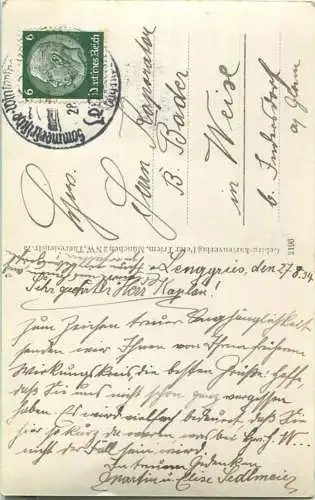 6 Deutsches Reich 6
Sommerfrische
28.
Herrn Kooperator
B. Bader
in Weise
b. Indersdorf
a/ Glonn
Gebirgs-Kartenverlag Peter Triem, München 2 NW, Theresienstr. 75
3190
Lenggries, den 27.8.34
Sehr geehrter Herr Kaplan!
Zum Zeichen treuer Anhänglichkeit
senden wir Ihnen von Ihrem früheren
Wirkungskreis die besten Grüße. Hoffe,
daß Sie uns nicht schon ganz vergessen
haben. Es wird vielfach bedauert daß Sie
hier so kurz da waren, was bei Hoch. W...
nicht der Fall sein wird.
In treuem Gedenken
Martin u. Elise Sedlmeier